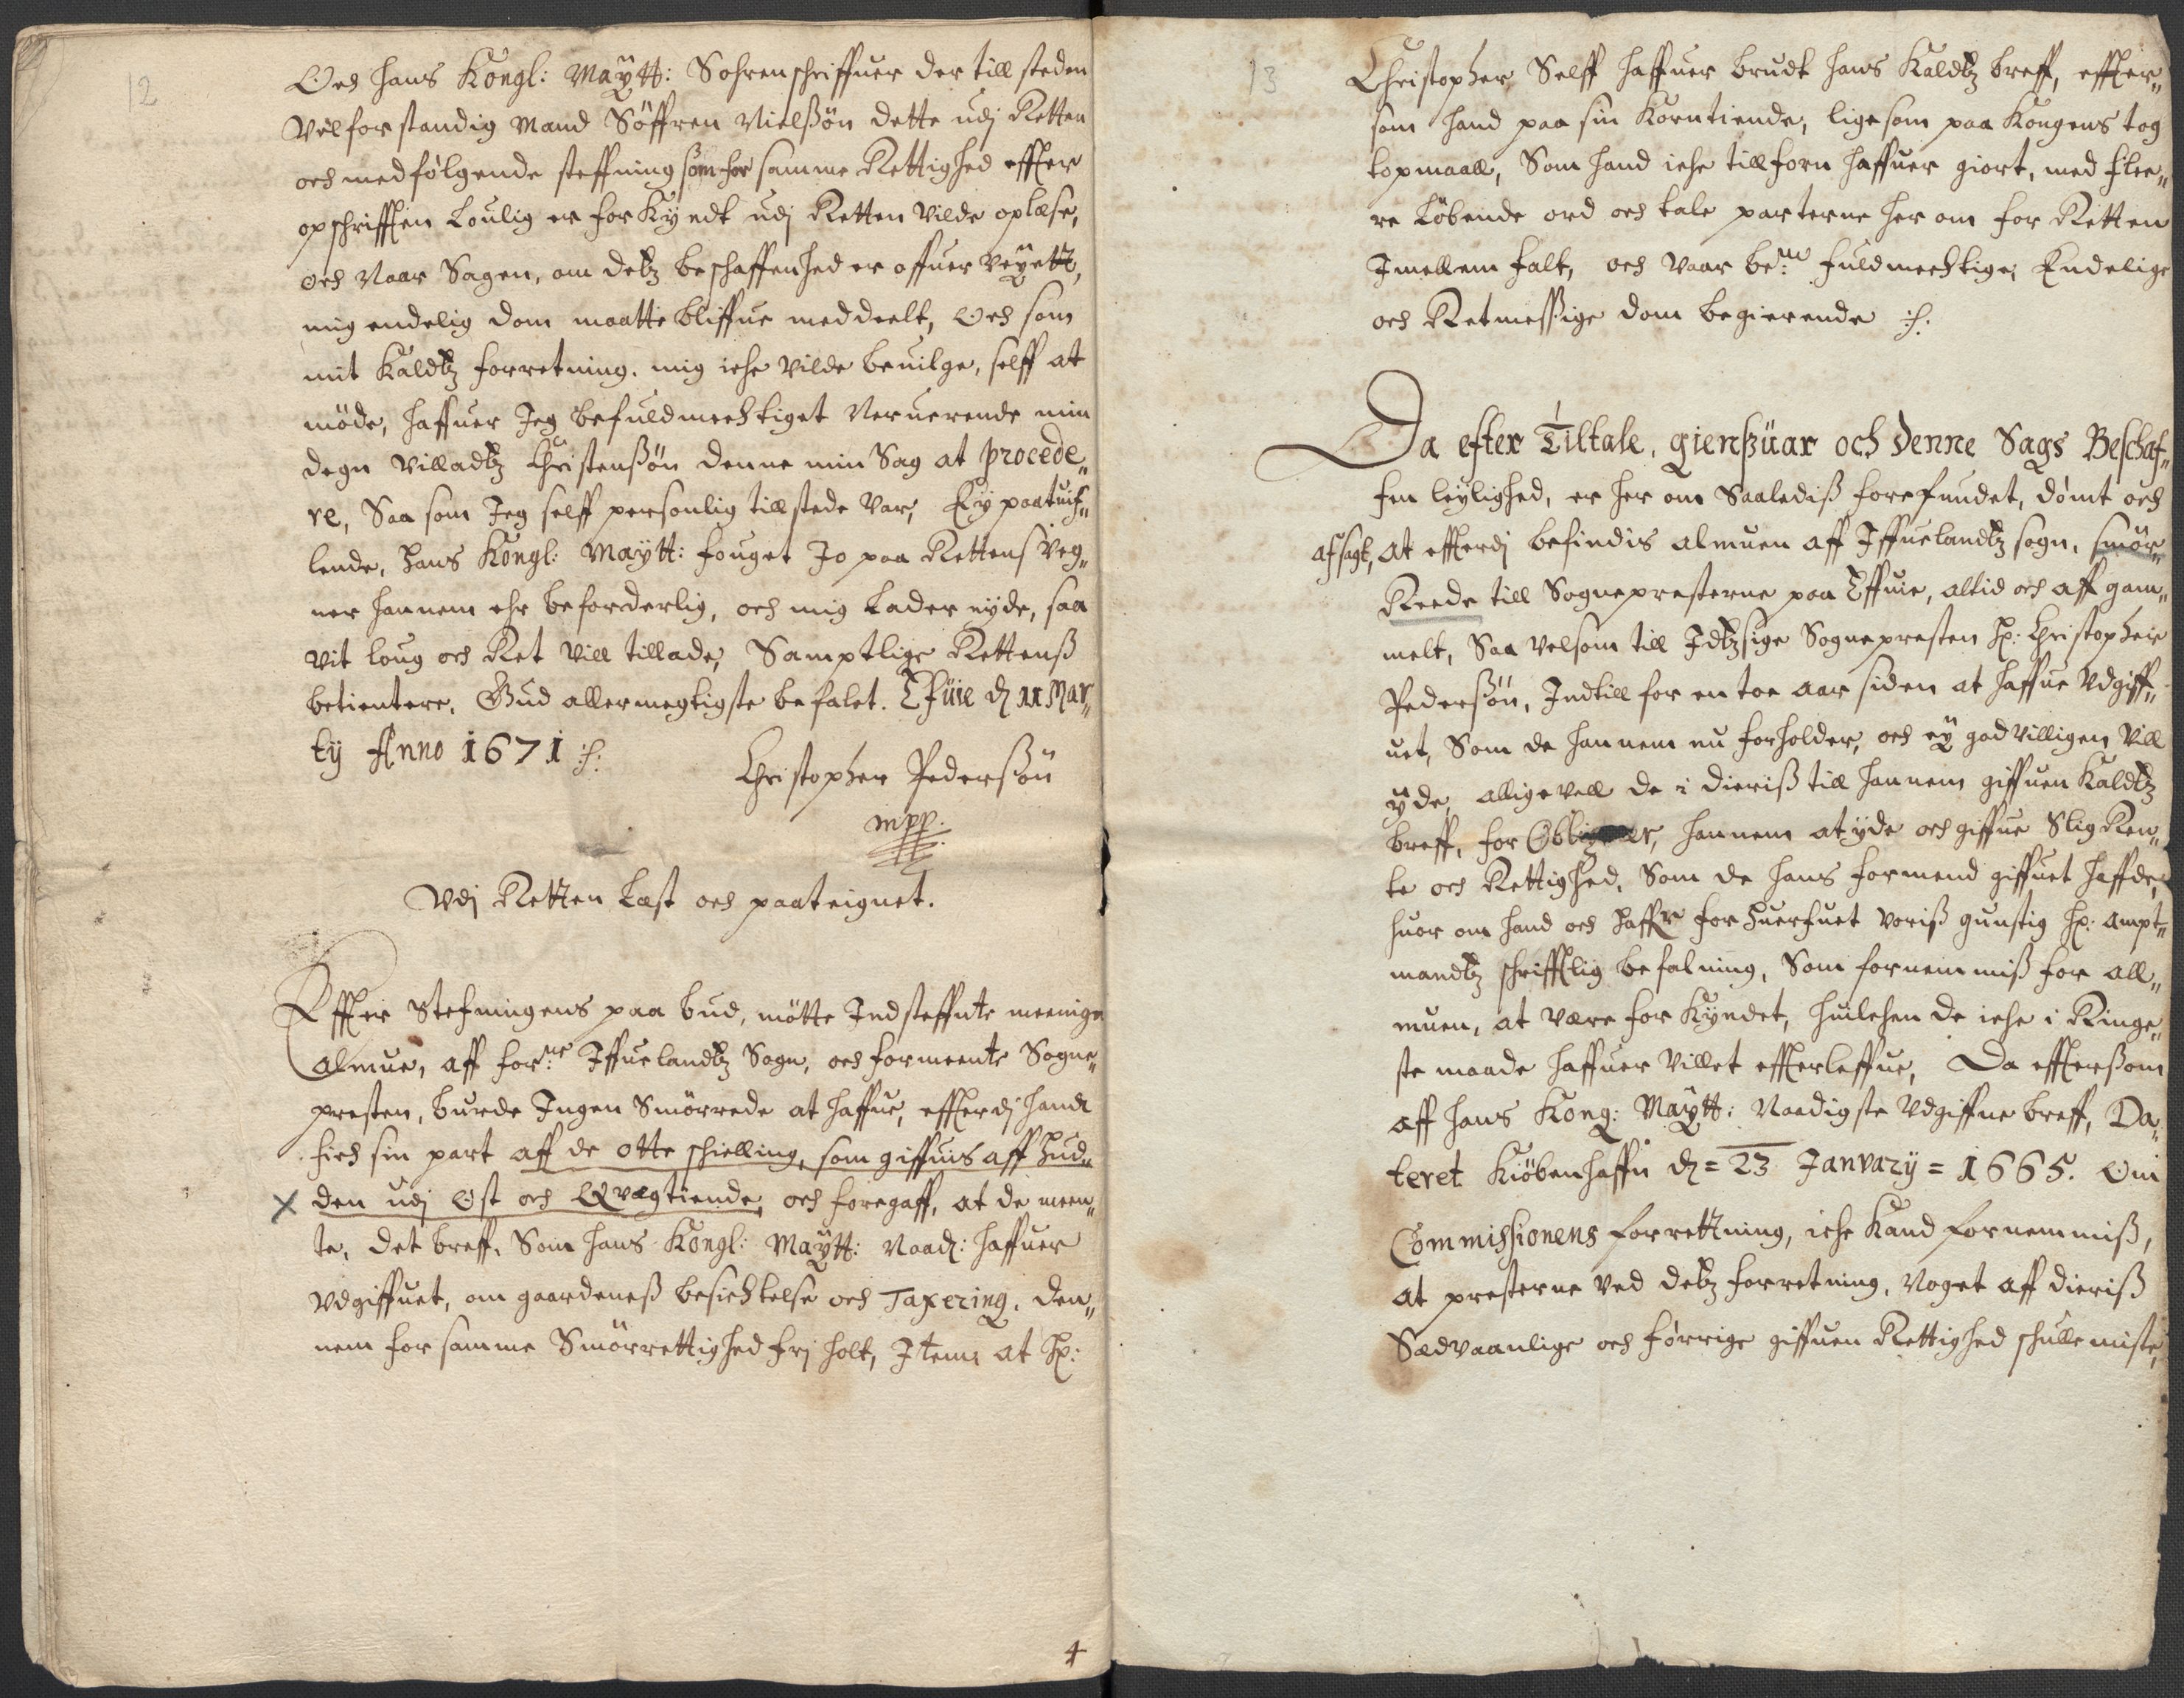 12
Och hans Kongl: Maÿtt: Sohrenschriffuer der till steden
Velforstandig Mand Söffren Nielßön dette udj Retten
och medfölgende steffning som for samme Rettighed effter
opschrifften Loulig er forKyndt udj Retten vilde oplæse,
och Naar Sagen, om detz beschaffenhed er offuerveÿett,
mig endelig dom maatte bliffue meddeelt, Och som
mit Kaldtz forretning, mig iche vilde beuilge, selff at
möde, haffuer Jeg befuldmechtiget Neruerende min
degn Villadtz Christenßön denne min Sag at procede„
re, Saa som Jeg selff personlig tillstede var, Ey paatuif„
lende, Hans Kongl: Maÿtt: fouget Jo paa Rettens veg„
ner hannem ehr beforderlig, och mig Lader nÿde, saa
vit loug och Ret vill tillade, Samptlige Rettenß
betientere, Gud allermegtigste befalet. Effuie d 11 Mar„
tÿ Anno 1671 :/:
Christopher Pederßön
mpp.
Vdj Retten Læst och paateignet.
Effter Stefningens paa bud, mötte Indsteffnte meenige
Almue, aff for:ne Iffuelandtz Sogn, och formeente Sogne„
presten, burde Ingen Smörrede at haffue, efftterdj hand
fich sin part aff de otte schielling, som giffuis aff Hud„
x den udj Ost och Qvægtiende, och foregaff, at de meen„
te, det breff, Som hans Kongl: Maÿtt: Naad: haffuer
vdgiffuet, om gaardeneß besichtelse och Taxering, den„
nem for samme Smörrettighed frj holt, Item at Hr:
4
13
Christopher Selff haffuer brudt hans Kaldtz breff, effter„
som hand paa sin Korntiende, lige som paa Kongens tog
topmaall, Som hand iche tillforn haffuer giort, med flee„
re Löbende ord och tale parterne her om for Retten
Imellem falt, och vaar be:te fuldmechtige, Endelige
och Retmessige dom begierende :/:
Da efter Tiltale, gienßüar och denne Sags Beschaf„
fen leylighed, er her om Saalediß forefundet, dömt och
afsagt, At effterdj befindis almuen aff Iffuelandtz sogn, smör„
Reede till Sognepresterne paa Effuie, altid och aff gam„
melt, Saa velsom till Idtzsige Sognepresten Hr: Christopher
Pederßön, Indtill for en toe aar siden at haffue vdgiff„
uet, Som de hannem nu forholder, och eÿ godvilligen vill
ÿde, alligevell de i dieriß till hannem giffuen Kaldtz
breff, for Obligerer, hannem at ÿde och giffue Slig Ren„
te och Rettighed, Som de hans formend giffuet haffde,
huor om hand och Haffr forhuerfuet voriß gunstig Hr: Ampt„
mandtz schrifftlig befalning, Som fornemmiß for All„
muen, at være forKyndet, huilchen de iche i Ringe„
ste maade haffuer villet effterleffue, Da effterßom
aff hans Kong: Maÿtt: Naadigste vdgiffne breff, Da„
teret Kiöbenhaffn d = 23 Janvarÿ = 1665. Om
Commishionens forrettning, iche Kand fornemmiß,
at presterne ved detz forretning, Noget aff dieriß
Sædvaanlige och förrige giffuen Rettighed schulle miste,